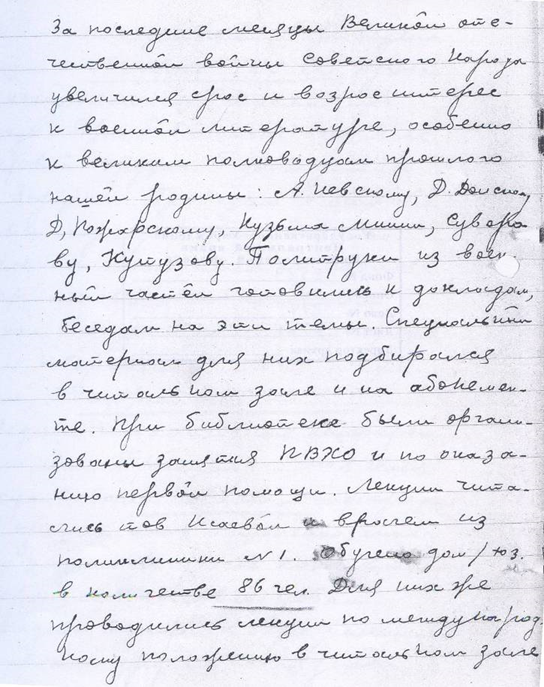 За последние месяцы Великой оте-
чественной войны Советского Народа
увеличился спрос и возрос интерес
к военной литературе, особенно
к великим полководцам прошлого
нашей родины: А. Невскому, Д. Донскому,
Д, Пожарскому, Кузьма Минин, Суворо-
ву, Кутузову. Политруки из воен-
ных частей готовились к докладам,
беседам на эти темы. Специальный
материал для них подбирался
в читальном зале и на абонемен-
те. При библиотеке были органи-
зованы занятия ПВХО и по оказа-
нию первой помощи. Лекции чита-
лись тов Исаевой и врачем из
поликлиники N 1. Обучено дом/хоз.
в количестве 86 чел. Для них же
проводились лекции по международ-
ному положению в читальном зале